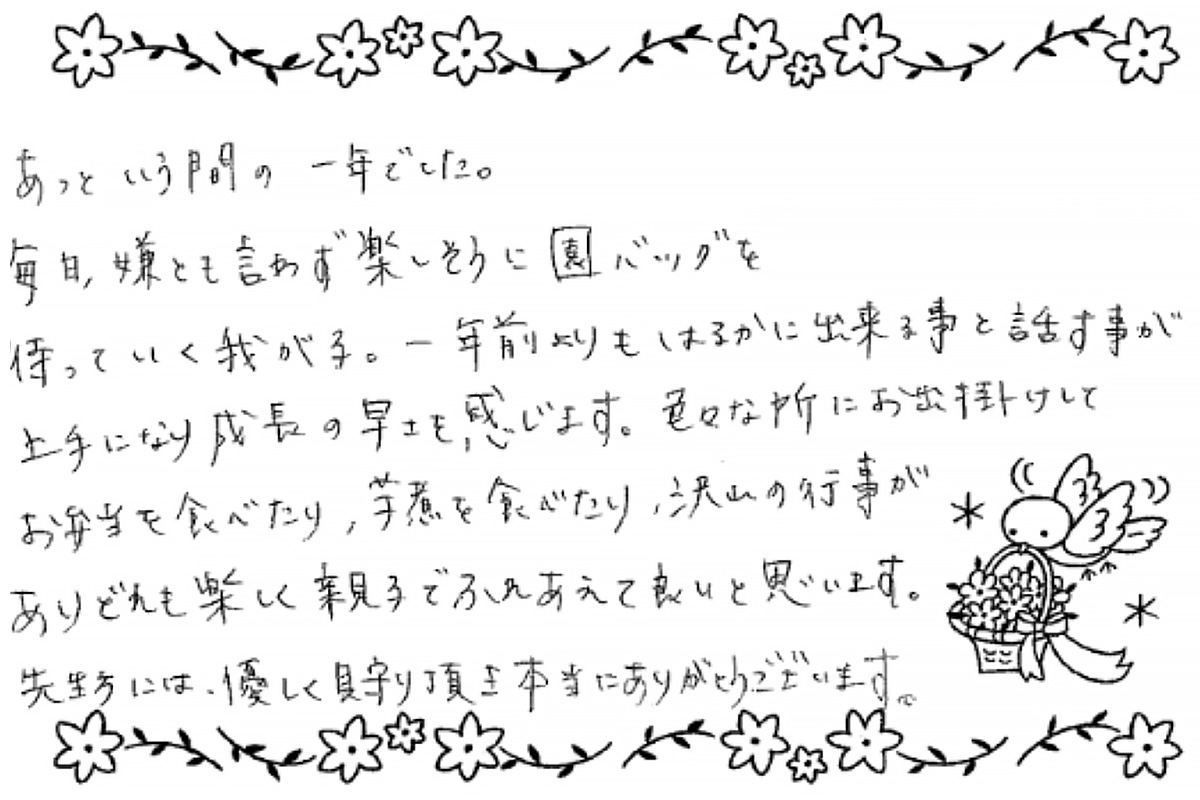 あっという間の一年でした。
毎日、嫌とも言わず楽しそうに園バッグを
待っていく我が子。一年前よりもはるかに出来る事と話す事が
上手になり成長の早さを感じます。色々な所にお出掛けして
お弁当を食べたり、芋煮を食べたり、沢山の行事が
ありどれも楽しく親子でふれあえて良いと思います。
先生方には、優しく見守り頂き本当にありがとうございます。